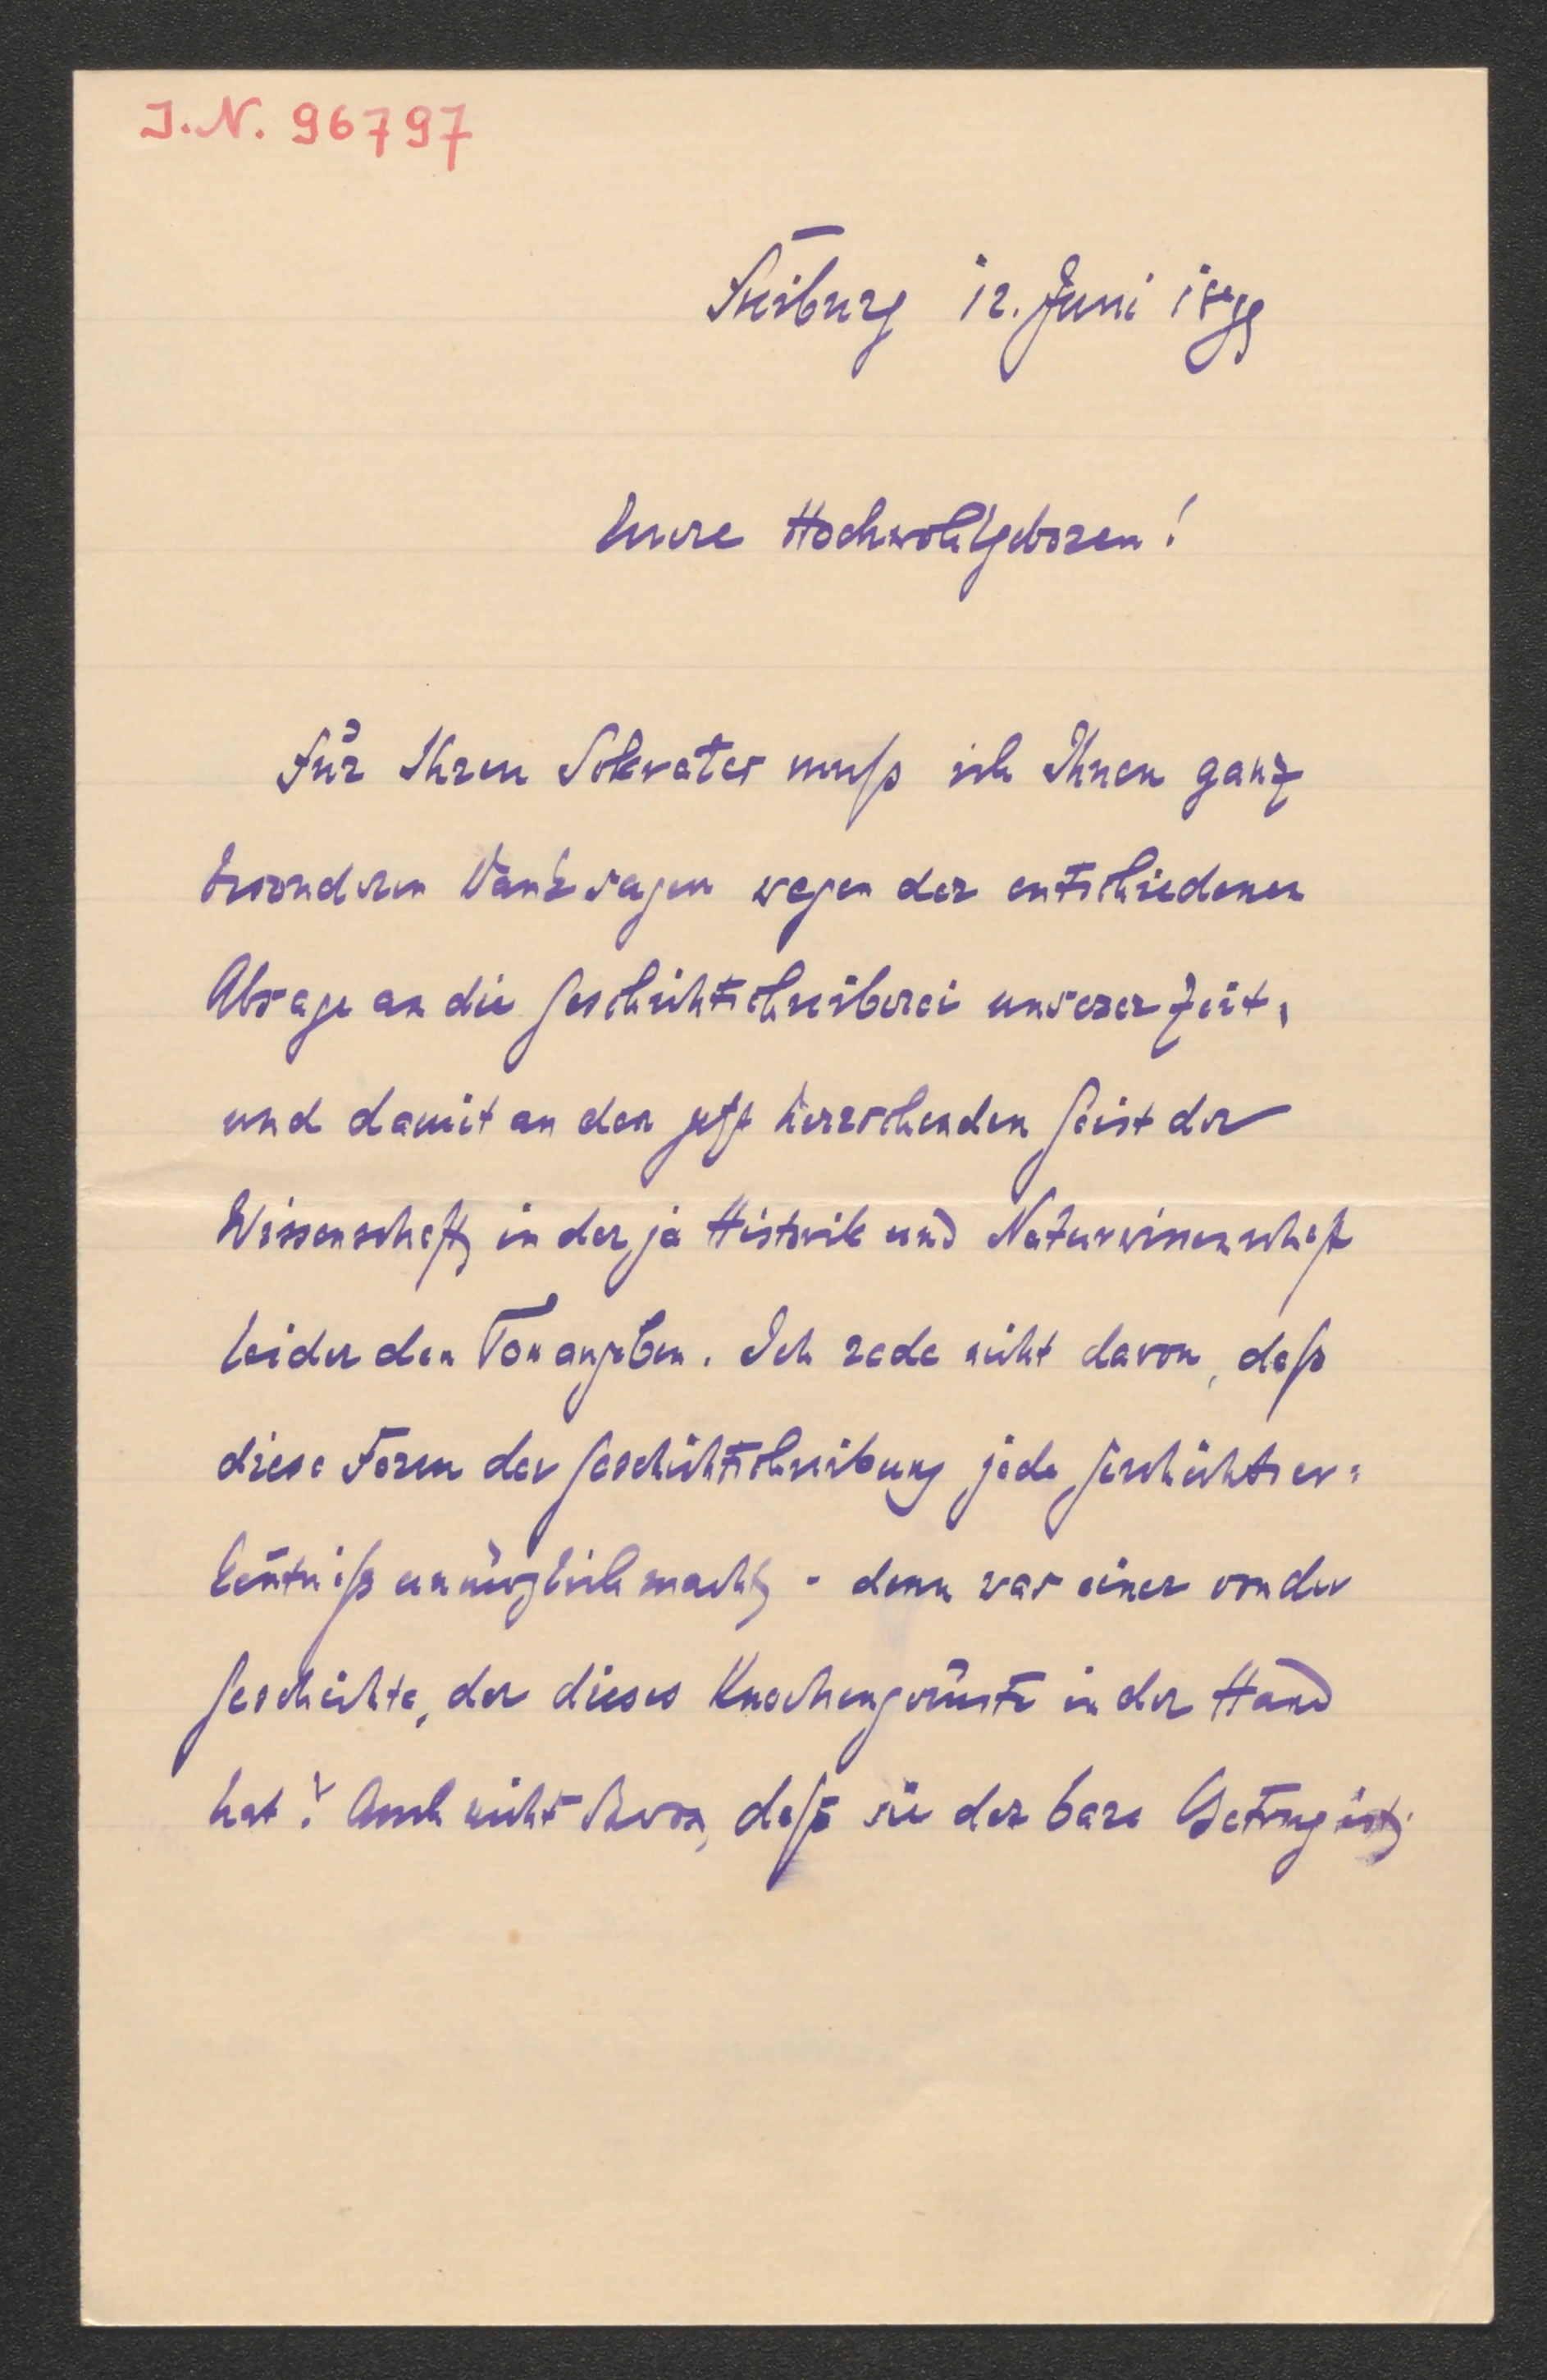 J. N. 96797
Freiburg 12. Juni 1899
Euere Hochwohlgeboren!
Für Ihren Sokrates muß ich Ihnen ganz
besonderen Dank sagen wegen der entschiedenen
Absage an die Geschichtschreiberei unserer Zeit,
und damit an den jetzt herrschenden Geist der
Wissenschaft, in der ja Historik und Naturwissenschaft
leider den Ton angeben. Ich rede nicht davon, daß
diese Form der Geschichtschreibung jede Geschichtser=
kentniß unmöglich macht, - denn was einer von der
Geschichte, der dieses Knochengerüste in der Hand
hat? Auch nicht davon, daß sie der bare Betrug ist,